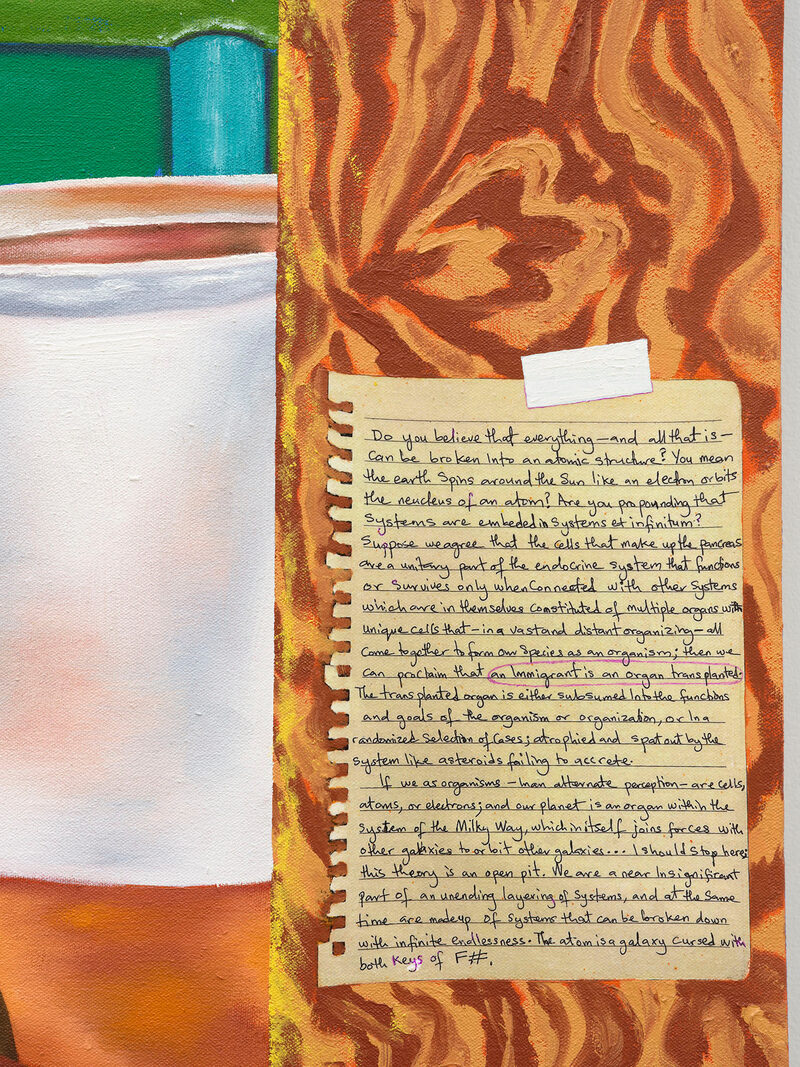 Do you believe that everything—and all that is—
can be broken Into an atomic structure? You mean
the earth Spins around the Sun like an electron orbits
the neucleus of an atom? Are you propounding that
Systems are embeded in Systems et infinitum?
Suppose we agree that the cells that make up the pancreas
are a unitary part of the endocrine system that functions
or Survives only when Connected with other Systems
which are in themselves constituted of multiple organs with
unique cells that—in a vast and distant organizing—all
come together to form our Species as an organism; then we
can proclaim that an Immigrant is an organ transplanted.
The transplanted organ is either subsumed Into the functions
and goals of the organism or organization, or In a
randomized Selection of Cases; atrophied and spat out by the
system like asteroids failing to accrete.
If we as organisms—In an alternate perception—are cells,
atoms, or electrons; and our planet is an organ within the
System of the Milky Way, which in itself joins forces with
other galaxies to orbit other galaxies... I should Stop here;
this theory is an open pit. We are a near Insignificant
part of an unending layering of Systems, and at the Same
time are made up of Systems that can be broken down
with infinite endlessness. The atom is a galaxy cursed with
both Keys of F#.